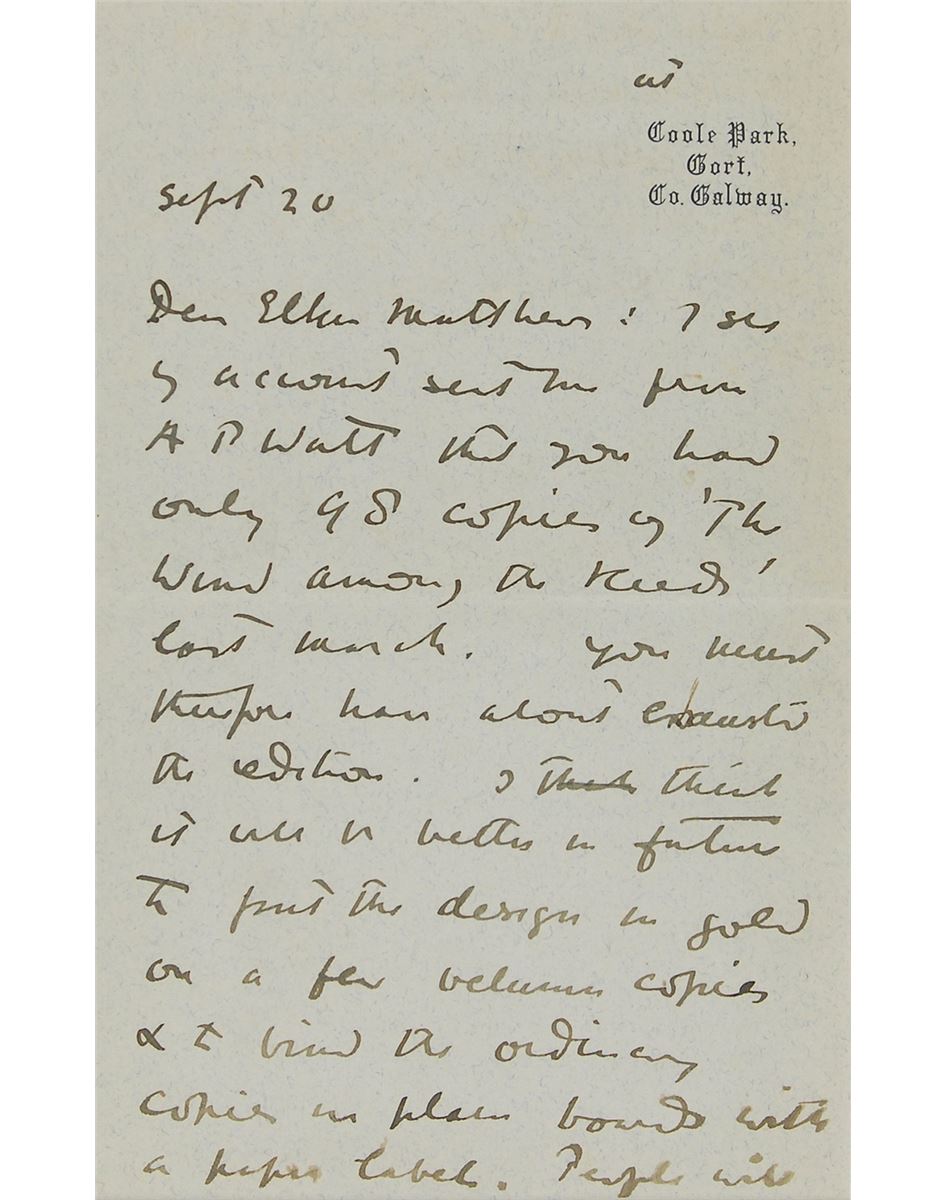 at
Coole Park,
Gort,
Co. Galway.
Sept 20
Dear Elkin Matthews: I see
by account sent me from
A P Watt that you had
only 98 copies of 'The
Wind among the Reeds'
last march. you must
therefore have about exhausted
the edition. I think think
it will be better in future
to print the design in gold
on a few velumn copies
& to bind the ordinary
copies in plain boards with
a paper label. People will